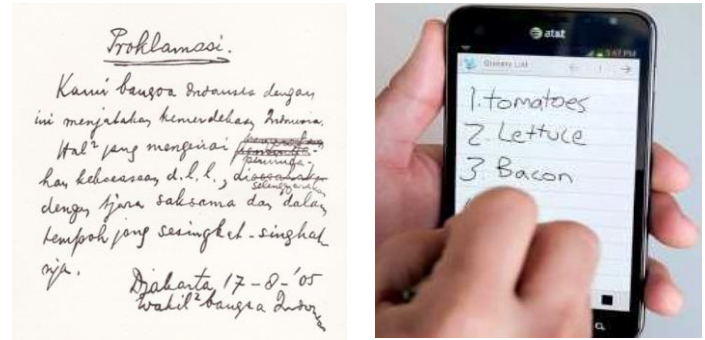 Proklamasi.
Kami bangsa Indonesia dengan
ini menjatakan kemerdekaan Indonesia.
Hal² jang mengenai
peminda-
han kekoeasaan d.l.l., di
selenggarakan
dengan tjara saksama dan dalam
tempoh jang sesingkat-singkat
nja.
Djakarta, 17-8-'05
Wakil² bangsa Indonesia
at&t
Grocery List
1. tomatoes
2. Lettuce
3. Bacon